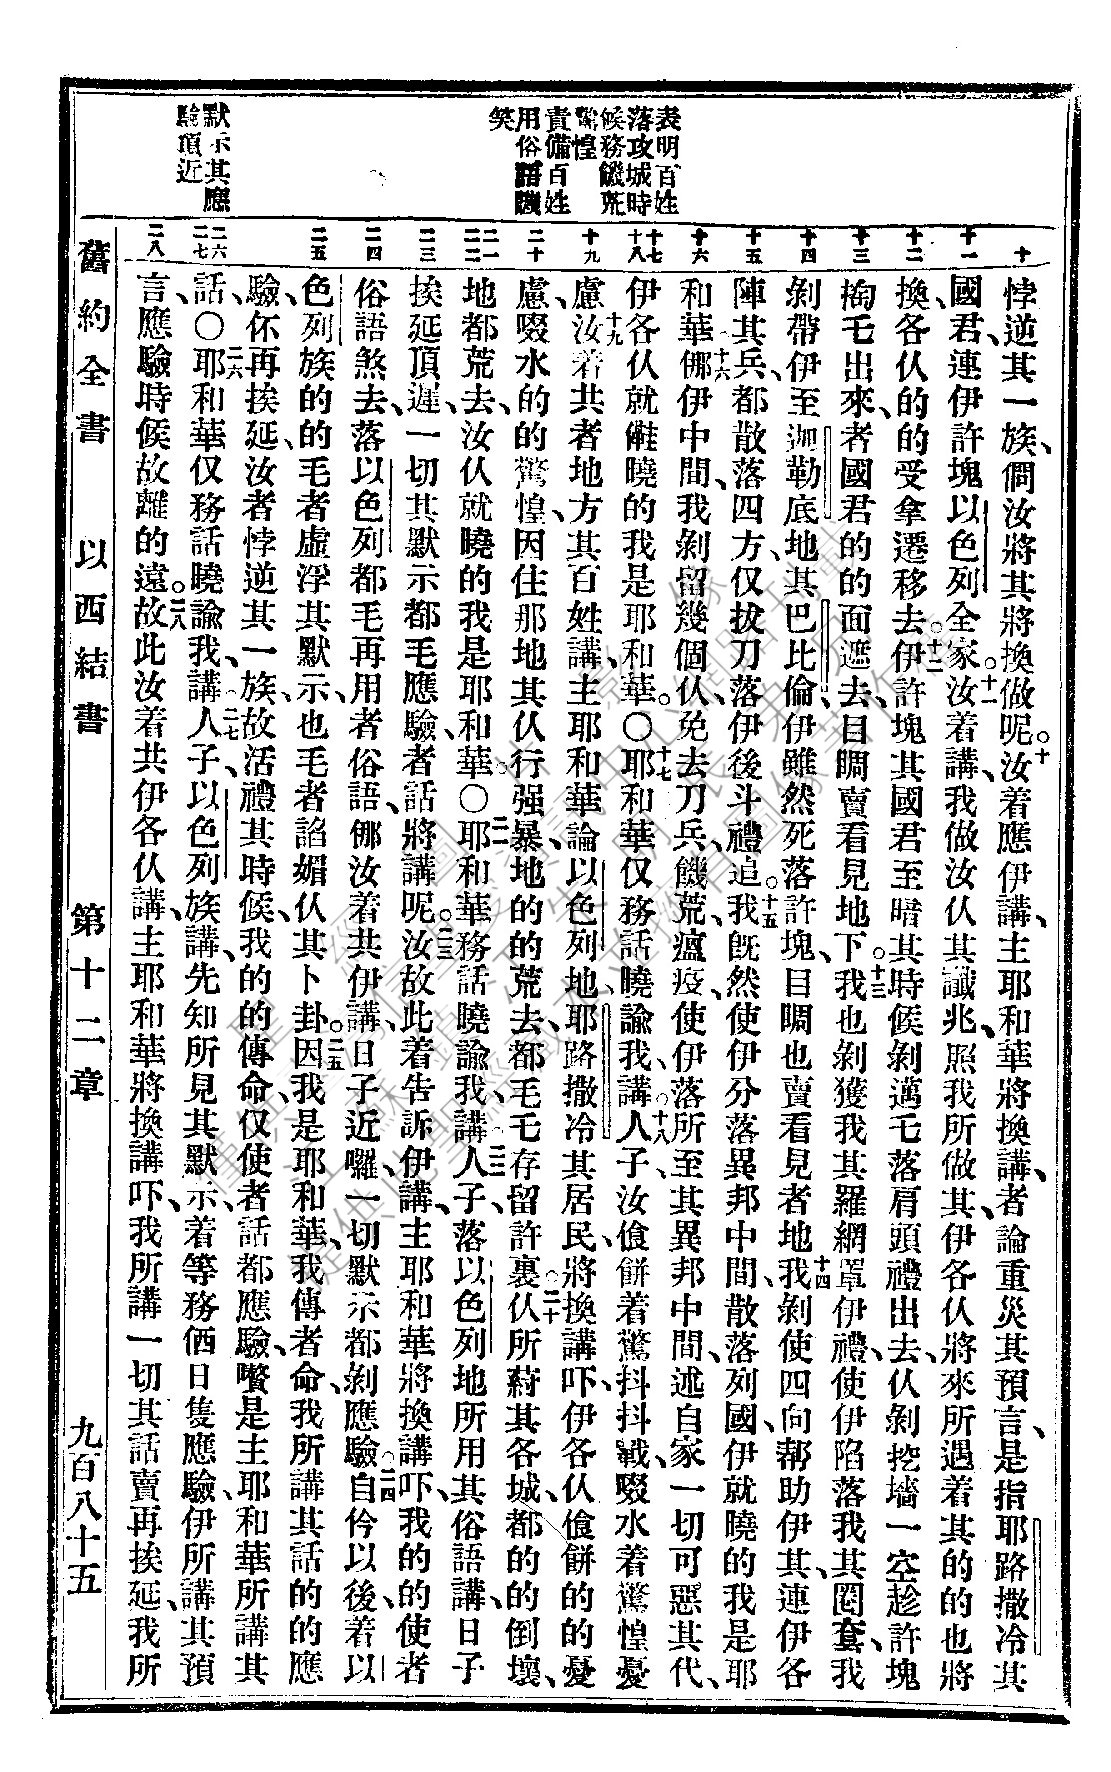 表明百姓
落攻城時
候務饑荒
驚惶
責備百姓
用俗語譏
笑
默示其應
驗頂近
十
十一
十二
十三
十四
十五
十六
十七
十八
十九
二十
二一
二二
二三
二四
二五
二六
二七
二八
悖逆其一族、僩汝將其將換做呢。十汝着應伊講、主耶和華將換講、者論重災其預言、是指耶路撒冷其
國君、連伊許塊以色列全家。十一汝着講、我做汝仈其讖兆、照我所做其、伊各仈將來所遇着其的的也將
換、各仈的的受拿遷移去。十二伊許塊其國君至暗其時候剝邁乇落肩頭禮出去、仈剝挖墻一空趁許塊
掏乇出來、者國君的的面遮去、目睭賣看見地下。十三我也剝獲我其羅網罩伊禮、使伊陷落我其圈套、我
剝帶伊至迦勒底地其巴比倫、伊雖然死落許塊、目睭也賣看見者地。十四我剝使四向幫助伊其、連伊各
陣其兵、都散落四方、仅拔刀落伊後斗禮追。十五我旣然使伊分落異邦中間、散落列國、伊就曉的我是耶
和華。十六㑚伊中間、我剝留幾個仈、免去刀兵、饑荒、瘟疫、使伊落所至其異邦中間、述自家一切可惡其代、
伊各仈就㑲曉的我是耶和華。〇十七耶和華仅務話曉諭我、講、十八人子、汝飡餅着驚抖抖戰、啜水着驚惶憂
慮、十九汝着共者地方其百姓講、主耶和華論以色列地、耶路撒冷其居民、將換講吓、伊各仈飡餅的的憂
慮、啜水的的驚惶、因住那地其仈行强暴、地的的荒去、都毛乇存留許裏。二十仈所蒔其各城、都的的倒壞、
地都荒去、汝仈就曉的我是耶和華。〇二一耶和華務話曉諭我、講、二二人子、落以色列地所用其俗語講、日子
挨延頂遲、一切其默示都毛應驗、者話將講呢。二三汝故此着告訴伊講、主耶和華將換講吓、我的的使者
俗語煞去、落以色列都毛再用者俗語、㑚汝着共伊講、日子近囉、一切默示都剝應驗。二四自伶以後、着以
色列族的的毛者虛浮其默示、也毛者諂媚仈其卜卦。二五因我是耶和華、我傳者命、我所講其話的的應
驗、伓再挨延、汝者悖逆其一族、故活禮其時候、我的的傳命、仅使者話都應驗、嚽是主耶和華所講其
話。〇二六耶和華仅務話曉諭我、講、二七人子、以色列族講、先知所見其默示、着等務価日隻應驗、伊所講其預
言、應驗時候故離的遠。二八故此汝着共伊各仈講、主耶和華將換講吓、我所講一切其話賣再挨延、我所
舊約全書 以西結書 第十二章 九百八十五